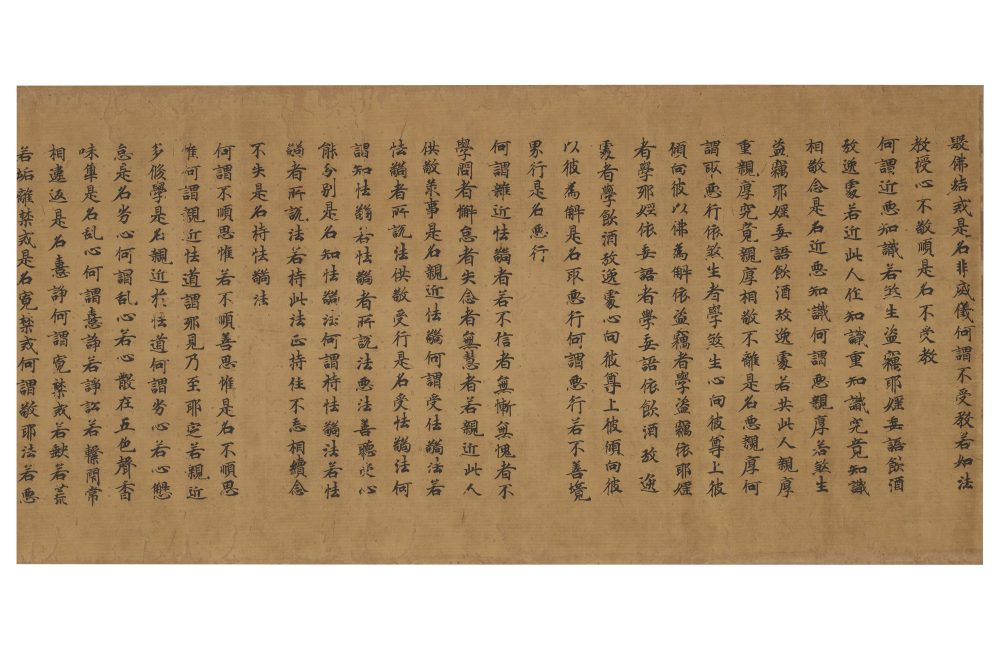 嚴佛結戒是名非威儀何謂不受教若如法
教授心不敬順是名不受教
何謂近惡知識若煞生盜竊耶婬妄語飲酒
放逸處若近此人作知識重知識究竟知識
相敬念是名近惡知識何謂惡親厚若煞生
盜竊耶婬妄語飲酒放逸處若共此人親厚
重親厚究竟親厚相敬不離是名惡親厚何
謂取惡行依煞生者學煞生心向彼尊上彼
傾向彼以佛為解依盜竊者學盜竊依耶婬
者學耶婬依妄語者學妄語依飲酒放逸
處者學飲酒放逸處心向彼尊上彼傾向彼
以彼為解是名取惡行何謂惡行若不善境
界行是名惡行
何謂離近怯𦡀者若不信者無慚無愧者不
學問者懈怠者失念者無慧者若親近此人
供敬葉事是名親近怯𦡀何謂受怯𦡀法若
怯𦡀者所說法供敬受行是名受怯𦡀法何
謂知怯𦡀若怯𦡀者所說法惡法善聽定心
能分別是名知怯𦡀法何謂持怯𦡀法若怯
𦡀者所說法若持此法正持住不忘相續念
不失是名持怯𦡀法
何謂不順思惟若不順善思惟是名不順思
惟何謂親近怯道謂耶見乃至耶定若親近
多修學是名親近於怯道何謂劣心若心懸
怠是名劣心何謂乱心若心散在五色聲香
味集是名乱心何謂憙諍若諍訟若繫閇常
相違返是名憙諍何謂寬禁戒若缺若荒
若垢離禁戒是名寬禁戒何謂敬耶法若惡